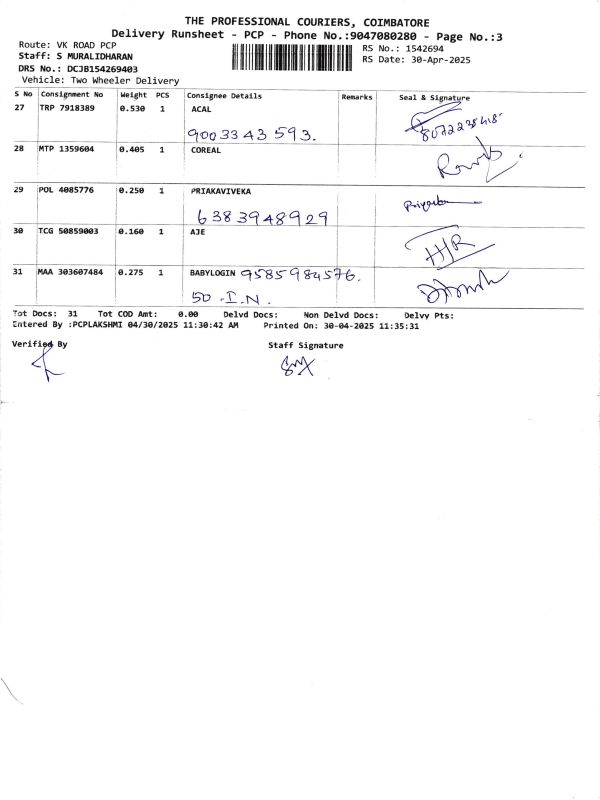 THE PROFESSIONAL COURIERS, COIMBATORE
Delivery Runsheet - PCP - Phone No.:9047080280 - Page No.:3
Route: VK ROAD PCP
RS No.: 1542694
Staff: S MURALIDHARAN
RS Date: 30-Apr-2025
DRS No.: DCJB154269403
Vehicle: Two Wheeler Delivery
S No Consignment No Weight PCS Consignee Details Remarks Seal & Signature
27 TRP 7918389 0.530 1 ACAL
9003343593.
28 MTP 1359604 0.405 1 COREAL
29 POL 4085776 0.250 1 PRIAKAVIVEKA
6383948929
30 TCG 50859003 0.160 1 AJE
31 MAA 303607484 0.275 1 BABYLOGIN 9585984576.
50 .I.N.
Tot Docs: 31 Tot COD Amt: 0.00 Delvd Docs: Non Delvd Docs: Delvy Pts:
Entered By :PCPLAKSHMI 04/30/2025 11:30:42 AM Printed On: 30-04-2025 11:35:31
Verified By Staff Signature